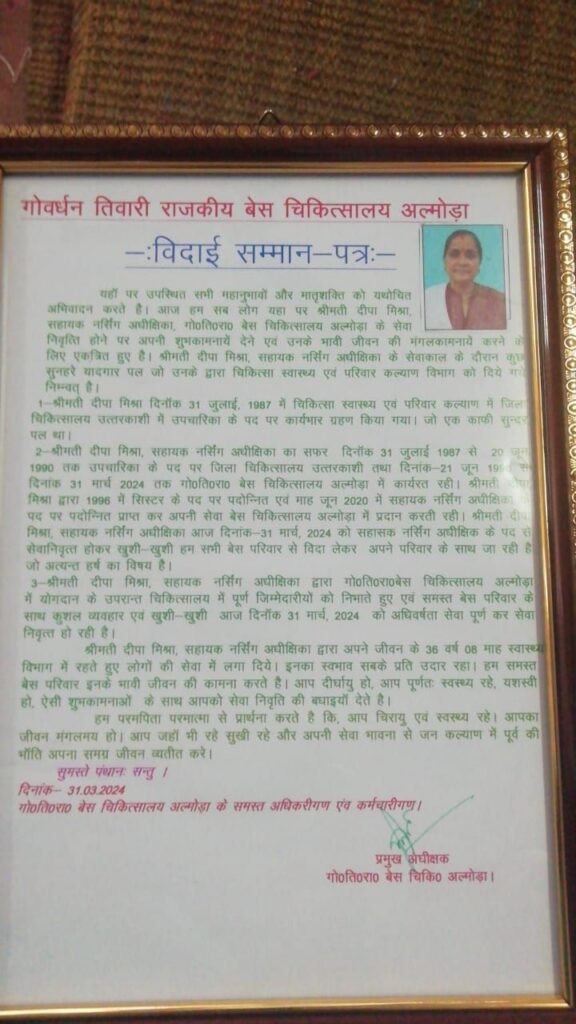 गोवर्धन तिवारी राजकीय बेस चिकित्सालय अल्मोड़ा
–ः विदाई सम्मान–पत्रः–
यहाँ पर उपस्थित सभी महानुभावों और मातृशक्ति को यथोचित
अभिवादन करते है। आज हम सब लोग यहा पर श्रीमती दीपा मिश्रा,
सहायक नर्सिग अधीक्षिका, गो0ति0रा0 बेस चिकित्सालय अल्मोडा के सेवा
निवृत्ति होने पर अपनी शुभकामनायें देने एवं उनके भावी जीवन की मंगलकामनायें करने के
लिए एकत्रित हुए है। श्रीमती दीपा मिश्रा, सहायक नर्सिग अधीक्षिका के सेवाकाल के दौरान कुछ
सुनहरे यादगार पल जो उनके द्वारा चिकित्सा स्वास्थ्य एवं परिवार कल्याण विभाग को दिये गये
निम्नवत् है।
1–श्रीमती दीपा मिश्रा दिनॉक 31 जुलाई, 1987 में चिकित्सा स्वास्थ्य एवं परिवार कल्याण में जिला
चिकित्सालय उत्तरकाशी में उपचारिका के पद पर कार्यभार ग्रहण किया गया। जो एक काफी सुन्दर
पल था।
2–श्रीमती दीपा मिश्रा, सहायक नर्सिग अधीक्षिका का सफर दिनॉक 31 जुलाई 1987 से 20 जून
1990 तक उपचारिका के पद पर जिला चिकित्सालय उत्तरकाशी तथा दिनांक–21 जून से
दिनांक 31 मार्च 2024 तक गो0ति0रा0 बेस चिकित्सालय अल्मोडा में कार्यरत रही। श्रीमती दीपा
मिश्रा द्वारा 1996 में सिस्टर के पद पर पदोन्नित एवं माह जून 2020 में सहायक नर्सिग अधीक्षिका के
पद पर पदोन्नित प्राप्त कर अपनी सेवा बेस चिकित्सालय अल्मोडा में प्रदान करती रही। श्रीमती दीपा
मिश्रा, सहायक नर्सिग अधीक्षिका आज दिनांक–31 मार्च, 2024 को सहासक नर्सिग अधीक्षिक के पद से
सेवानिवृत्त होकर खुशी–खुशी हम सभी बेस परिवार से विदा लेकर अपने परिवार के साथ जा रही है
जो अत्यन्त हर्ष का विषय है।
3–श्रीमती दीपा मिश्रा, सहायक नर्सिग अधीक्षिका द्वारा गो0ति0रा0बेस चिकित्सालय अल्मोडा
में योगदान के उपरान्त चिकित्सालय में पूर्ण जिम्मेदारीयों को निभाते हुए एवं समस्त बेस परिवार के
साथ कुशल व्यवहार एवं खुशी–खुशी आज दिनॉक 31 मार्च, 2024 को अधिवर्षता सेवा पूर्ण कर सेवा
निवृत्त हो रही है।
श्रीमती दीपा मिश्रा, सहायक नर्सिग अधीक्षिका द्वारा अपने जीवन के 36 वर्ष 08 माह स्वास्थ्य
विभाग में रहते हुए लोगों की सेवा में लगा दिये। इनका स्वभाव सबके प्रति उदार रहा। हम समस्त
बेस परिवार इनके भावी जीवन की कामना करते है। आप दीर्घायु हो, आप पूर्णतः स्वस्थ्य रहे, यशस्वी
हो, ऐसी शुभकामनाओं के साथ आपको सेवा निवृति की बघाइयाँ देते है।
हम परमपिता परमात्मा से प्रार्थना करते है कि, आप चिरायु एवं स्वस्थ्य रहे। आपका
जीवन मंगलमय हो। आप जहाँ भी रहे सुखी रहे और अपनी सेवा भावना से जन कल्याण में पूर्व की
भाँति अपना समग्र जीवन व्यतीत करे।
सुमस्ते पंथानः सन्तु ।
दिनांक– 31.03.2024
गो0ति0रा0 बेस चिकित्सालय अल्मोडा के समस्त अधिकरीगण एंव कर्मचारीगण।
प्रमुख अधीक्षक
गो0ति0रा0 बेस चिकि0 अल्मोड़ा।